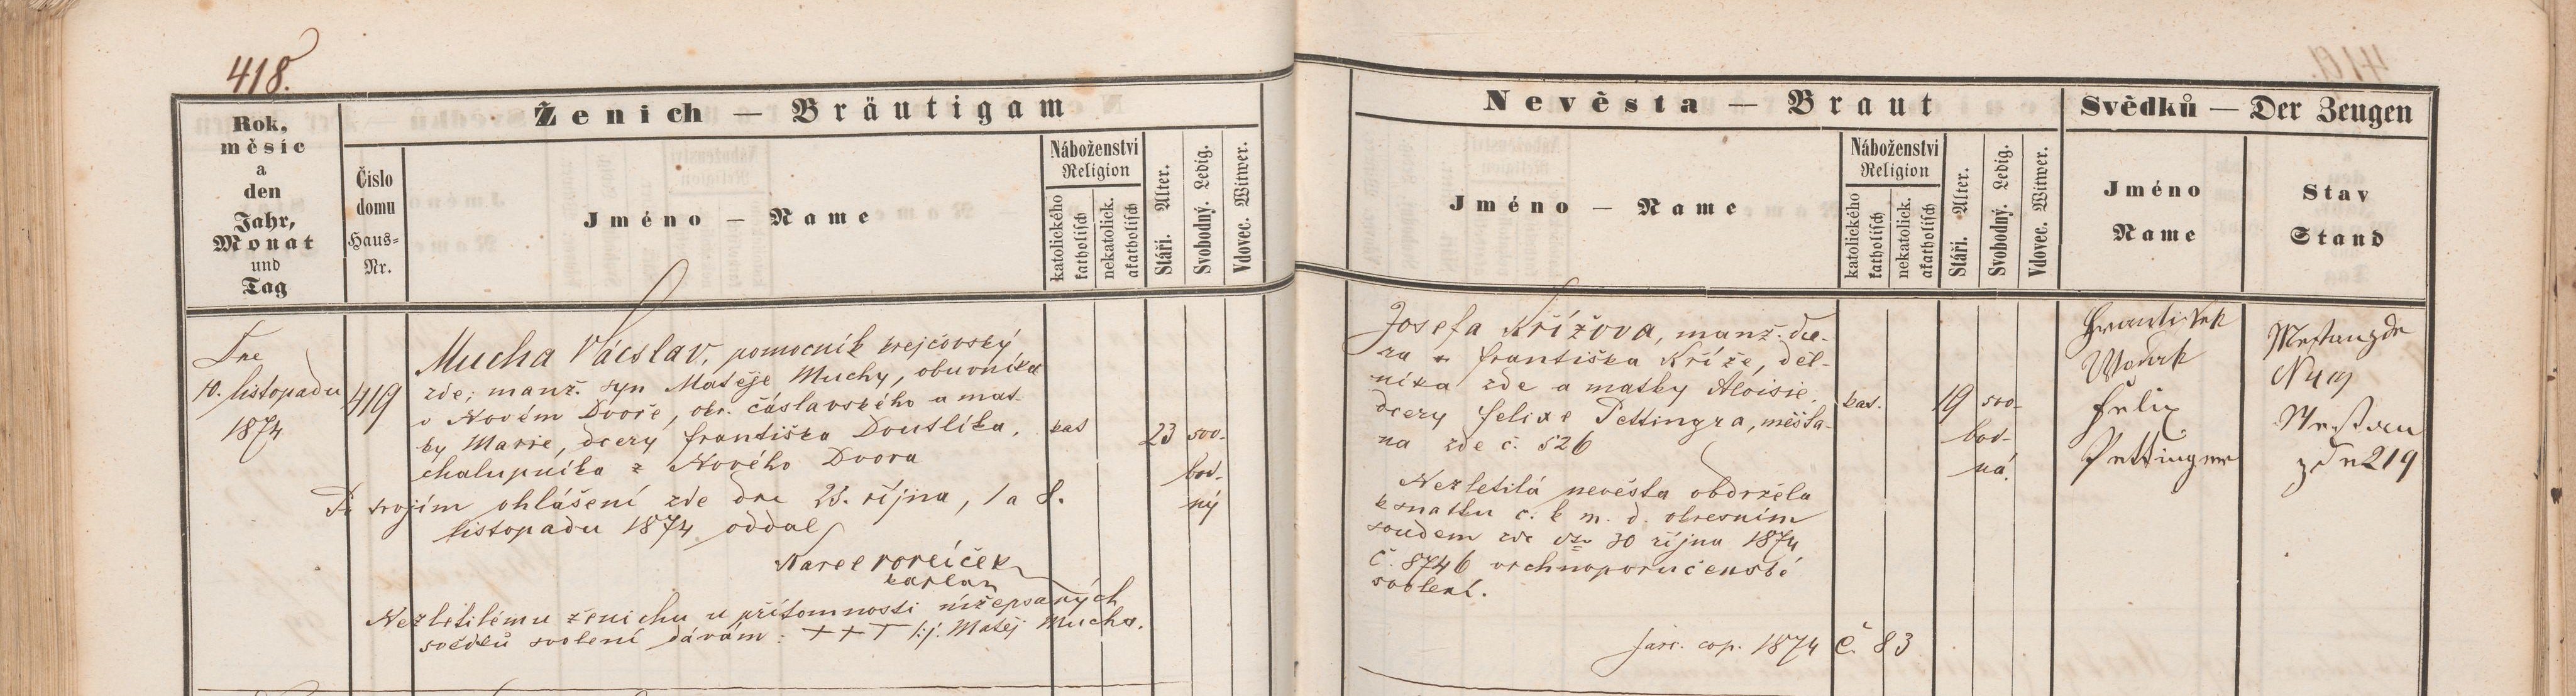 418.
Rok,
měsíc
a
den
Jahr,
Monat
und
Tag
Ženich — Bräutigam
Číslo
domu
Haus-
Nr.
Jméno — Name
Náboženství
Religion
katolického
katholisch
nekatolick.
akatholisch
Stáří. Alter.
Svobodný. Ledig.
Vdovec. Witwer.
Dne
10. listopadu
1874
419
Mucha Vácslav, pomocník krejčovský
zde; manž. syn Matěje Muchy, obuvníka
v Novém Dvoře, okr. čáslavského a mat-
ky Marie, dcery Františka Doutlíka,
chalupníka z Nového Dvora
kat
23
svo-
bod-
ný
Po trojím ohlášení zde dne 25. října, 1 a 8.
listopadu 1874 oddal
Karel
kaplan
Nezletilému ženichu u přítomnosti nížepsaných
svědků svolení dávám: +++ Matěj Mucha.
Nevěsta — Braut
Jméno — Name
Náboženství
Religion
katolického
katholisch
nekatolick.
akatholisch
Stáří. Alter.
Svobodný. Ledig.
Vdovec. Witwer.
Josefa Křížova, manž. dce-
ra Františka Kříže, děl-
níka zde a matky Aloisie,
dcery Felixe Pettingra, měšťa-
na zde č. 526
kat.
19
svo-
bod-
ná.
Nezletilá nevěsta obdržela
k sňatku c. k. m. d. okresním
soudem zde dto 30 října 1874
č. 8746 vrchnoporučenské
svolení.
fasc. cop. 1874 č. 83
Svědků — Der Zeugen
Jméno
Name
Stav
Stand
František
Felix
Pettinger
zde 219